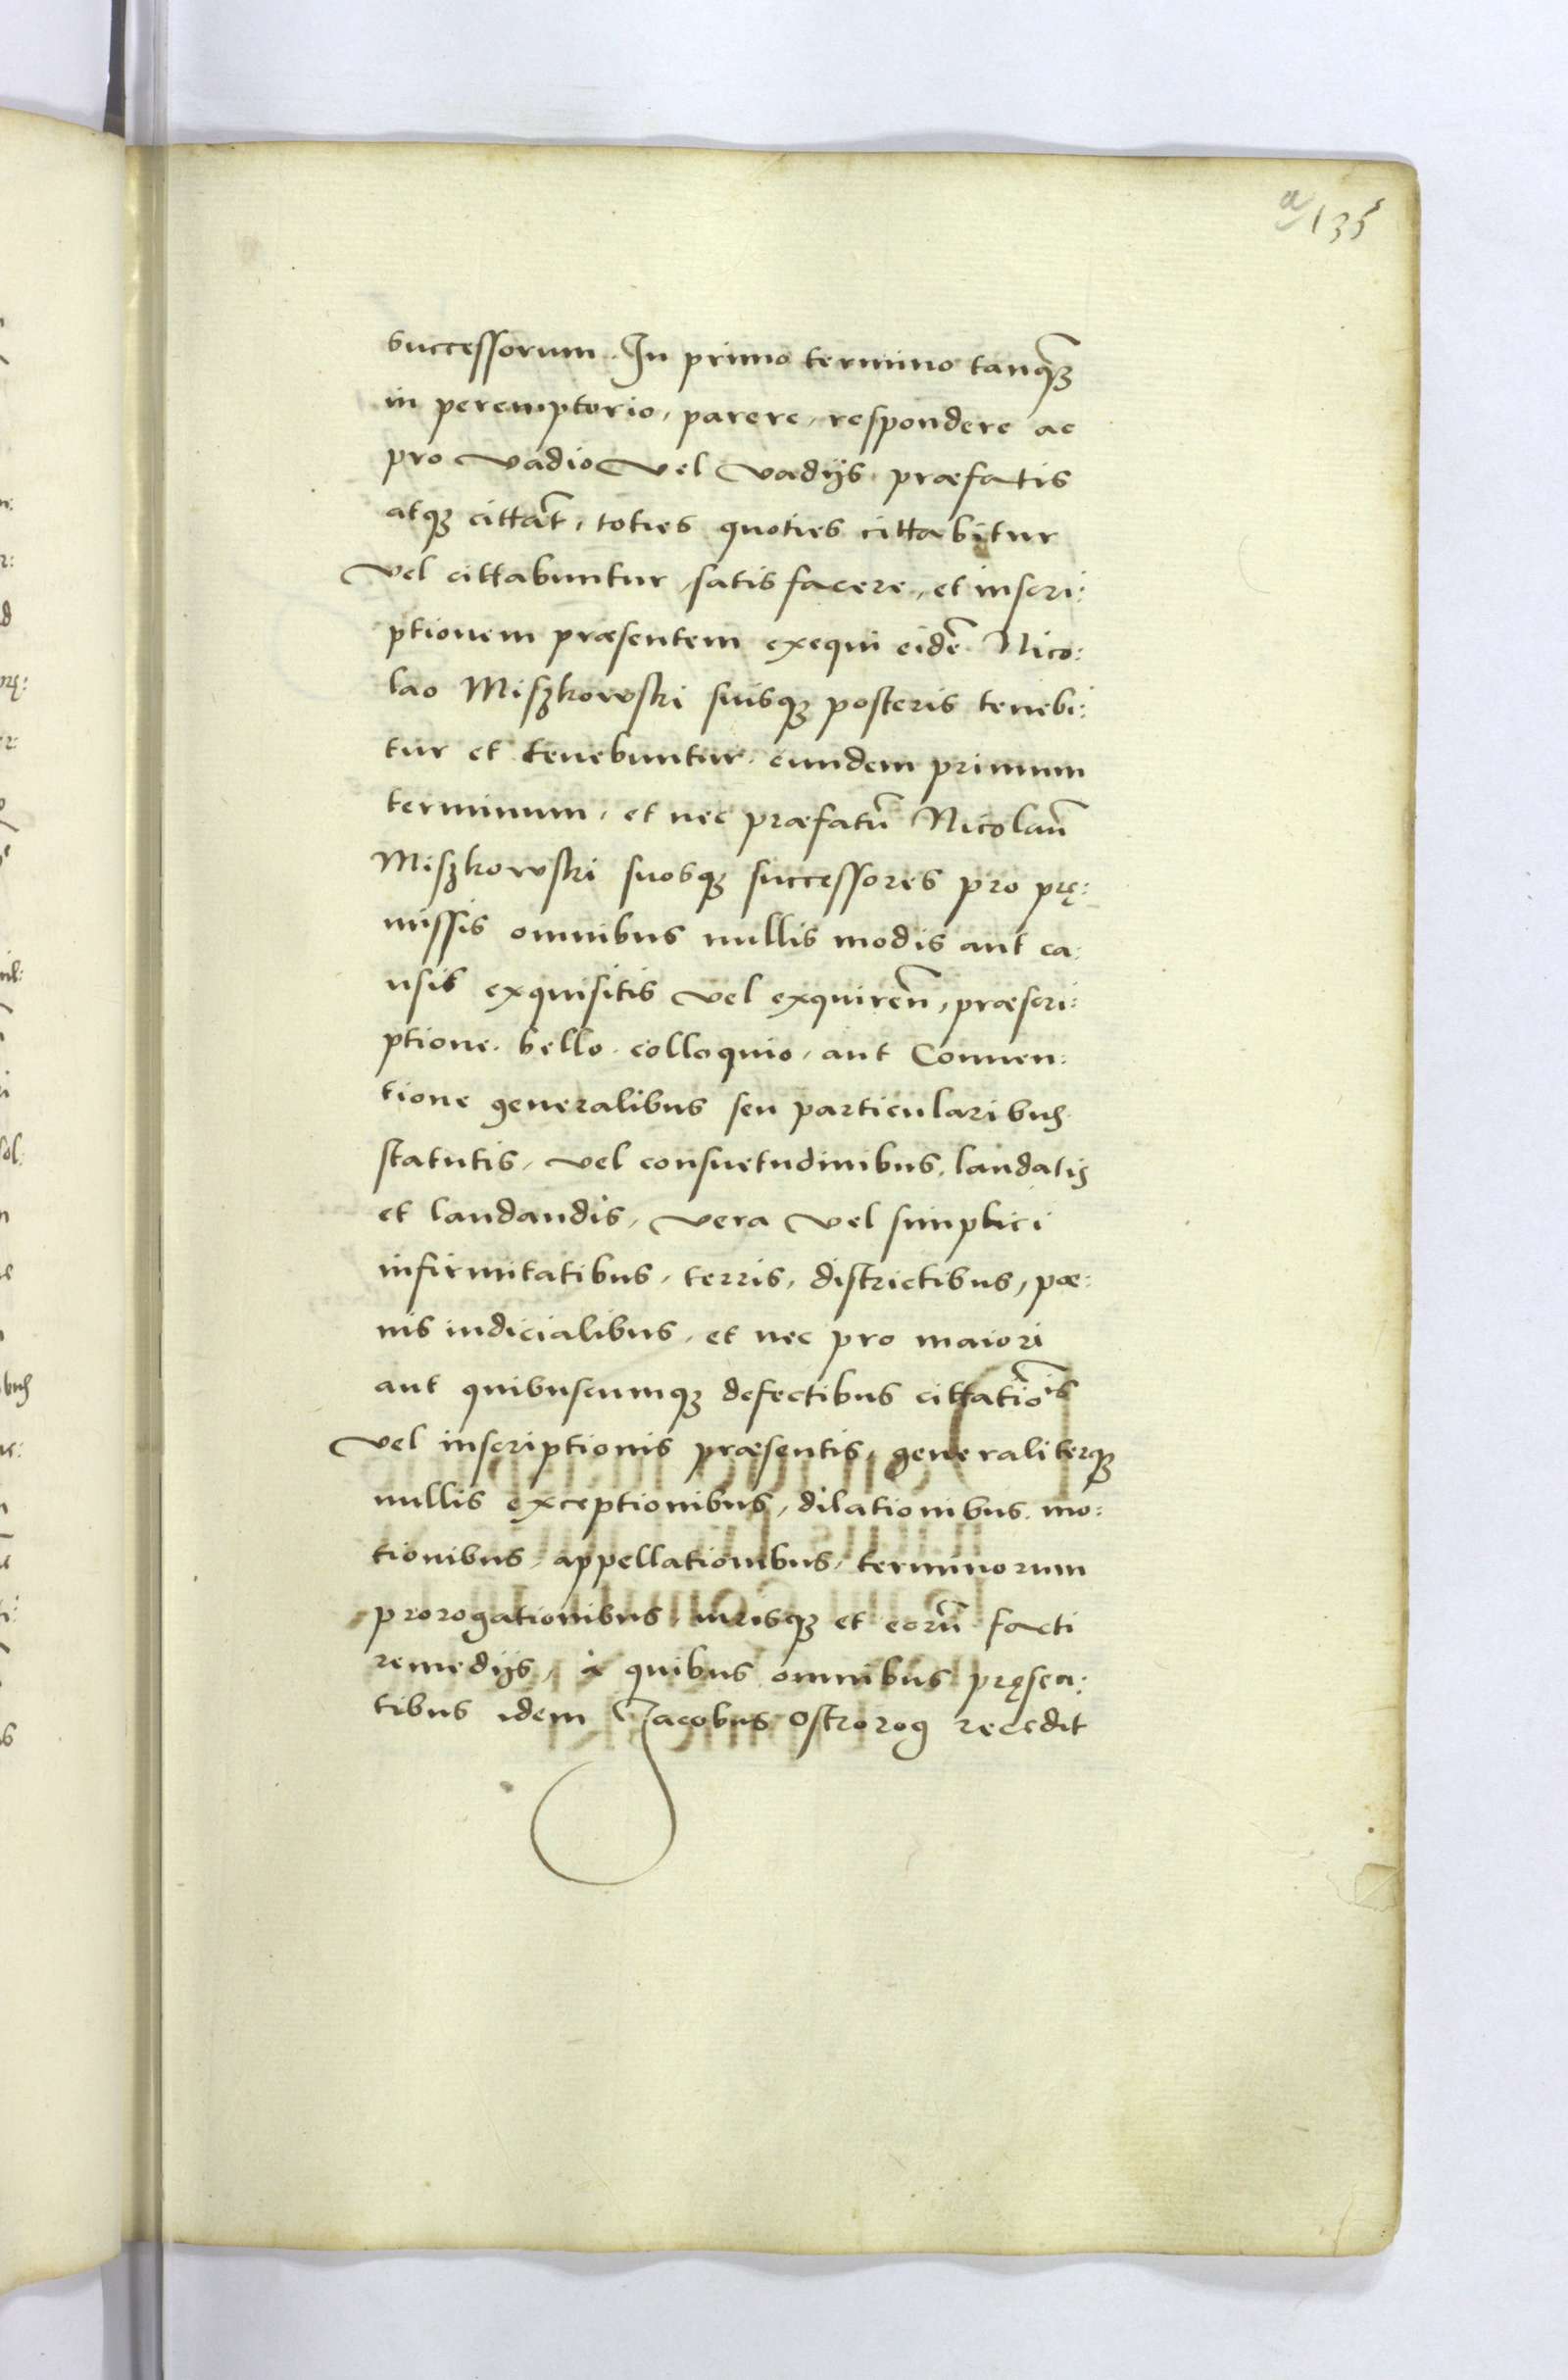 a/135
successorum. In primo termino tanq̃ꝫ
in peremptorio, parere, respondere ac
pro vadio vel vadijs præfatis
atqꝫ cittañt, toties quoties cittabitur
vel cittabuntur, satisfacere, et inscri:
ptionem præsentem exequi eidẽ Nico:
lao Miszkowski suisqꝫ posteris tenebi:
tur et tenebuntur. eundem primum
terminum, et nec præfatũ Nicolaũ
Miszkowski suosqꝫ successores pro prę:
missis omnibus nullis modis aut ca:
usis exquisitis vel exquireñ, præscri:
ptione. bello. colloquio, aut Conuen:
tione generalibus seu particularibus
statutis, vel consuetudinibus, laudatis
et laudandis, vera vel simplici
infirmitatibus, terris, districtibus, pœ:
nis iudicialibus, et nec pro maiori
aut quibuscumqꝫ defectibus cittatiõis
vel inscriptionis præsentis, generaliterqꝫ
nullis exceptionibus, dilationibus. mo:
tionibus, appellationibus, terminorum
prorogationibus, iurisqꝫ et eorũ facti
remedijs, à quibus omnibus pręscri:
tibus idem Jacobus Ostrorog recedit